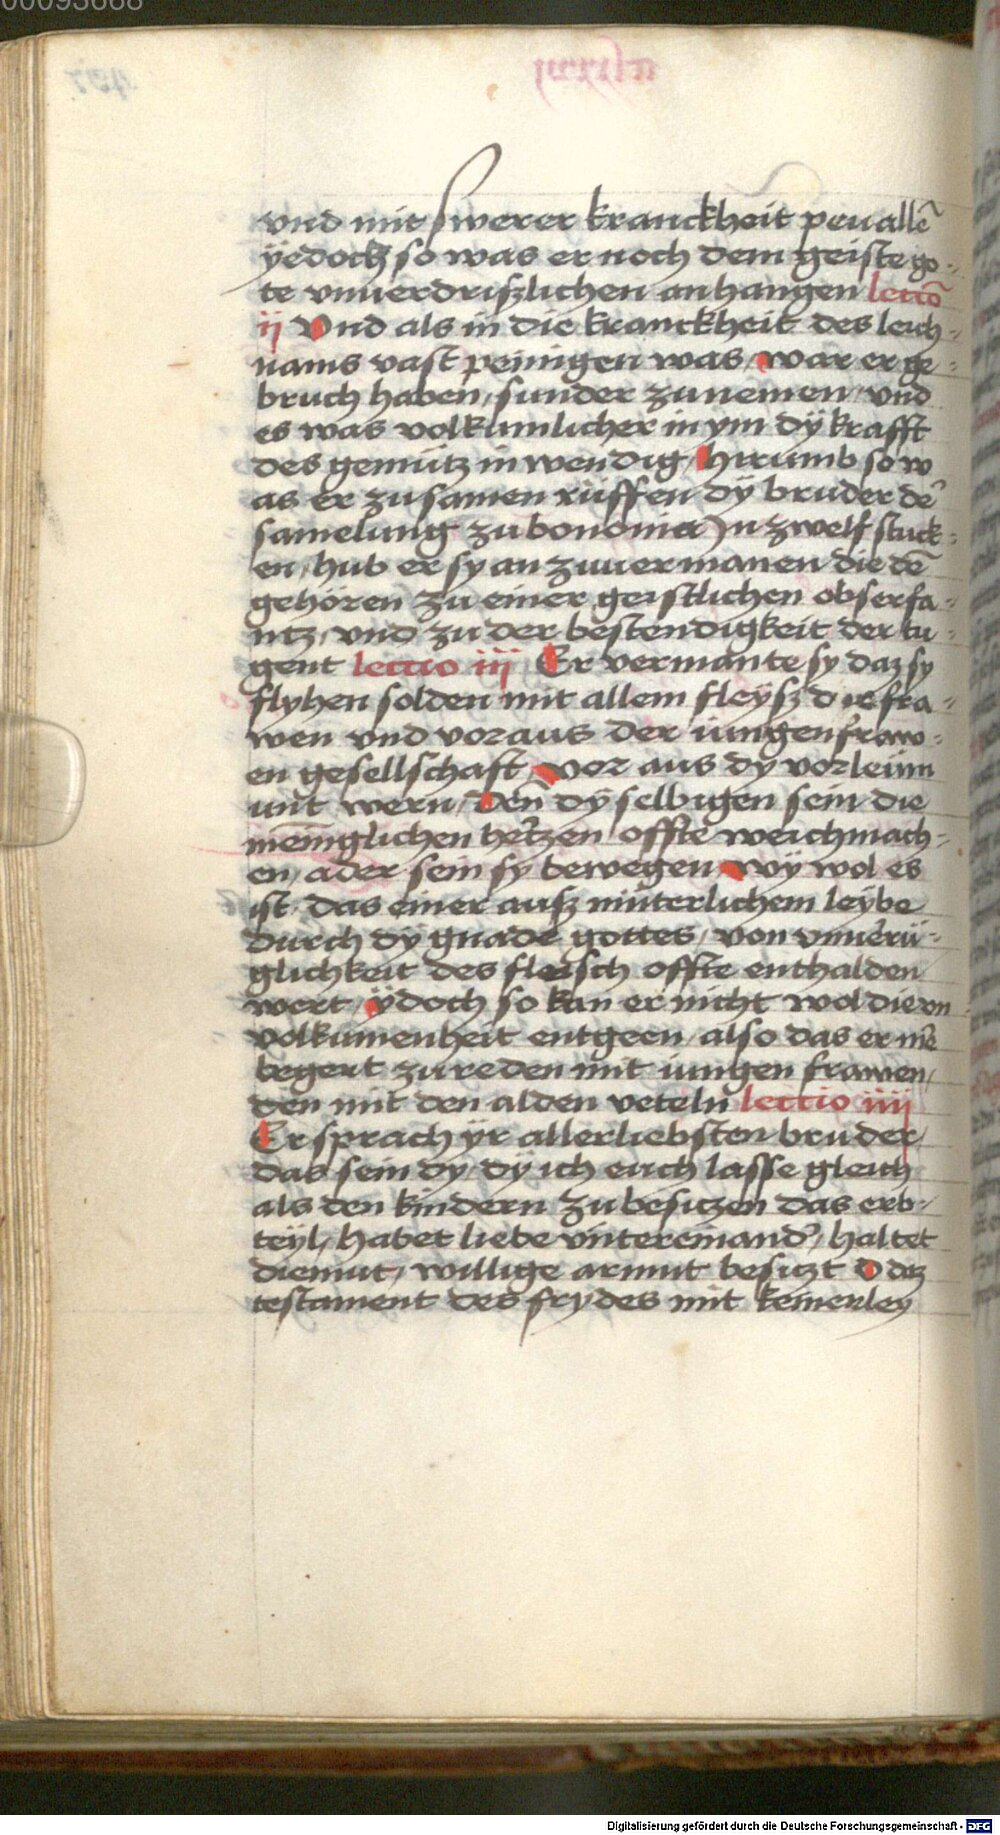 00093668
vnd mit swerer kranckheit peuallē
ÿedoch so was er noch dem geiste go-
te vnuerdrißlichen anhangen lectō
ij Vnd als in die kranckheit des leich-
nams vast peinigen was, war er ge-
bruch haben, sunder zunemen, vnd
es was volkumlicher in ym dÿ krafft
des gemütz inwendig, hirumb so w
as er zu samen rüffen dÿ bruder de᷑
samelung zu bononia Jn zwelf stuck-
en, hub er sy an zuuermanen die dē
gehören zu einer geistlichen obserfa-
ntz, vnd zu der bestendigkeit der tu-
gent lectio iij Er vermante sy daz sy
flyhen solden mit allem fleÿsz die fra-
wen vnd voraus der iungenfraw-
en gesellschaft, vor aus dy vorleüm
unt wern, Den̄ dÿ selbigen sein die
menīglichen hertzen offte weichmach-
en, ader sein sy bewegen, wÿ wol es
ist, das einer ausz müterlichem leÿbe
durch dÿ gnade gottes, von vnuerü-
glichkeit des fleisch offte enthalden
wert, ÿdoch so kan er nicht wol die vn
volkumenheit entgeen, also das er me᷑
begert zu reden mit iungen frawen,
den mit den alden veteln lectio iiij
Er sprach ÿr allerliebsten bruder,
das sein dy, dÿ ich euch lasse gleich
als den kindern zu besitzen das erb-
teÿl, habet liebe vntereinand᷑, haltet
diemut, willige armut besitzt O ditz
testament des frydes mit keinerley
Digitalisierung gefördert durch die Deutsche Forschungsgemeinschaft - DFG